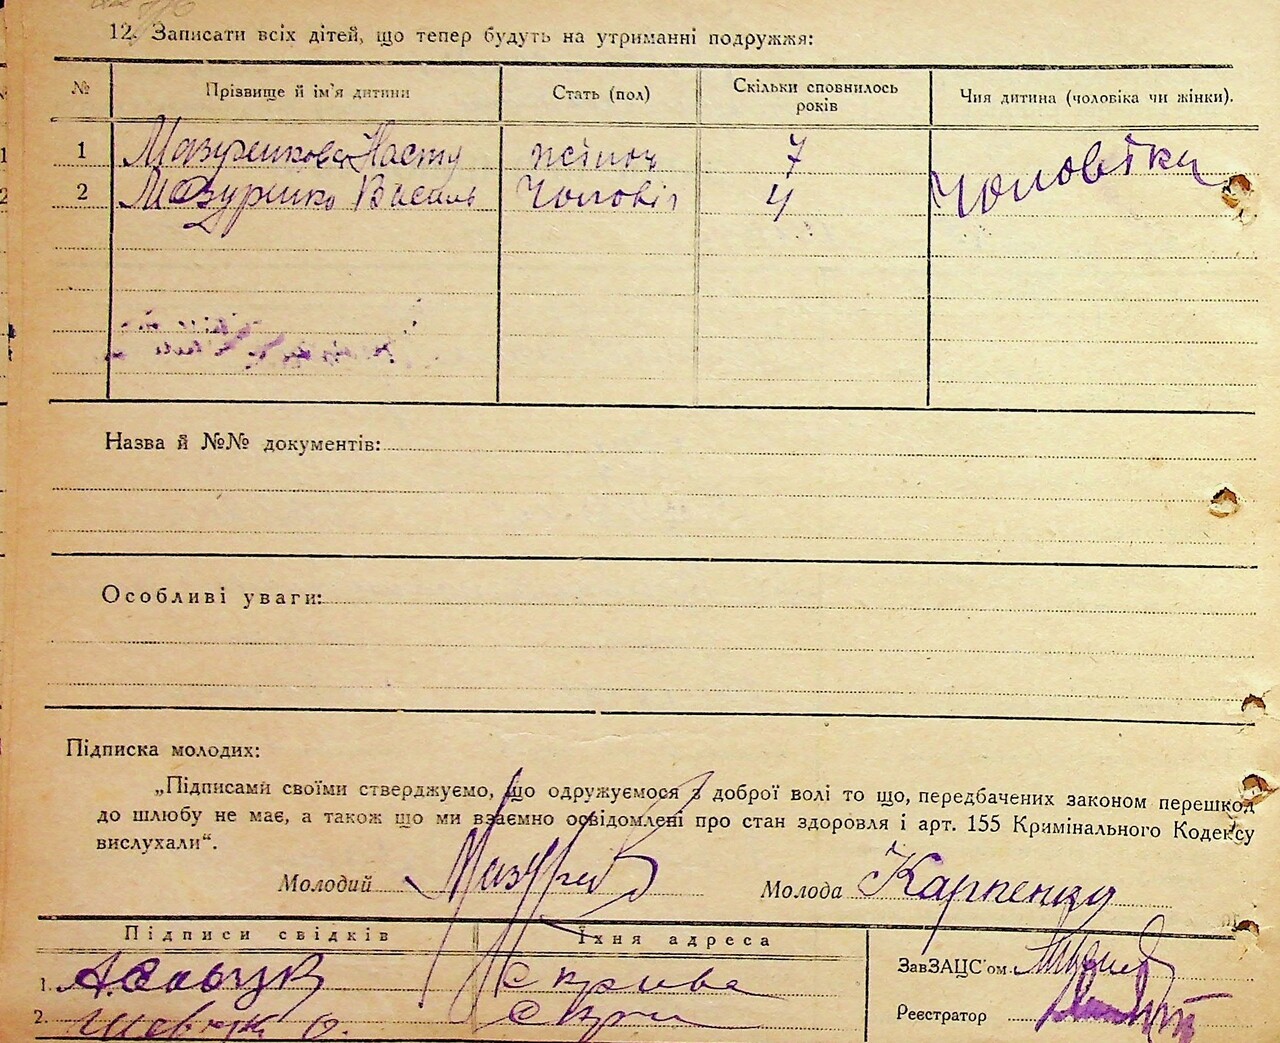 12. Записати всіх дітей, що тепер будуть на утриманні подружжя:
№ Прізвище й ім'я дитини Стать (пол) Скільки сповнилось років Чия дитина (чоловіка чи жінки).
1 Мазуренкова Насту 7
2 Мазуренко Василь Чоловіч 4
Чоловіка
Назва й №№ документів:
Особливі уваги:
Підписка молодих:
„Підписами своїми стверджуємо, що одружуємося з доброї волі то що, передбачених законом перешкод
до шлюбу не має, а також що ми взаємно освідомлені про стан здоровля і арт. 155 Кримінального Кодексу
вислухали“.
Молодий Молода Карпенко
Підписи свідків Їхня адреса
ЗавЗАЦС'ом
1.
2.
Реєстратор